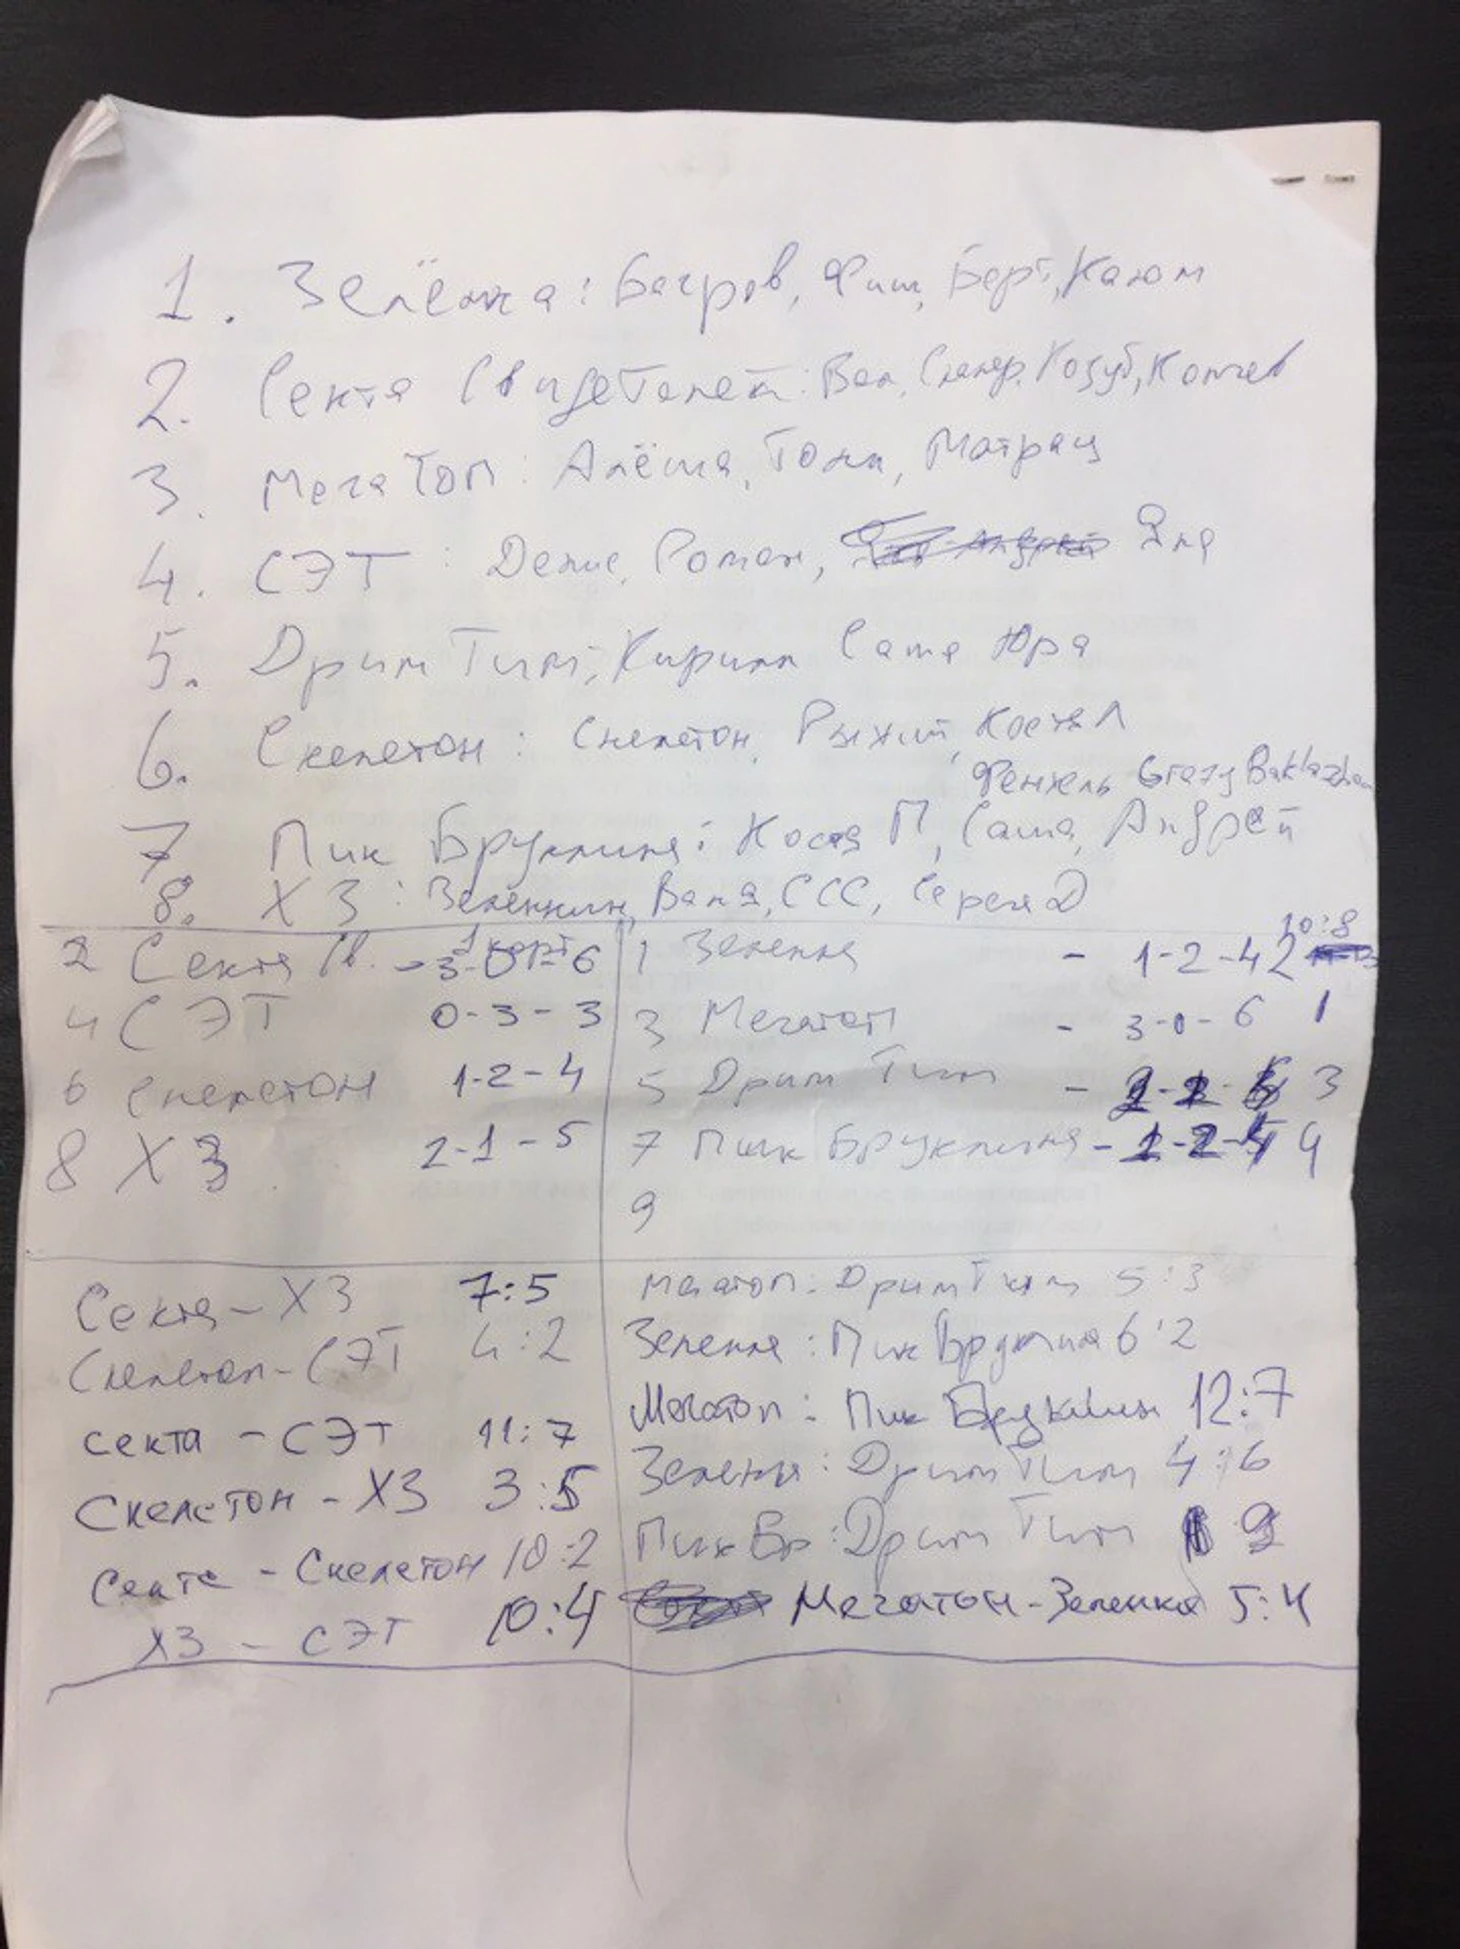 1. Зелёнка: Багров, Фиш, Берт, Каюм
2. Секта Свидетелей: Вал, Козуб, Копчев
3. МегаТоп: Алёша, Толи, Матрац
4. СЭТ: Денис, Роман, Яна
5. Дрим Тим; Кирилл Саша Юра
6. Скелетон: Скелетон, Рыжий, Костя Л
Фенхель Grazy Baklazhan
7 Пик Бруклина: Костя П, Саша, Андрей
8. ХЗ: Зеленкин, Ваня, ССС, Серёга Д
1 корт
2 Секта Св. - 3-0-6
4 СЭТ 0-3-3
6 Скелетон 1-2-4
8 ХЗ 2-1-5
10:8
1 Зеленка - 1-2-4 2
3 Мегатоп - 3-0-6 1
5 Дрим Тим - 3
7 Пик Бруклина - 4
9
Секта - ХЗ 7:5
Скелетон - СЭТ 4:2
секта - СЭТ 11:7
Скелетон - ХЗ 3:5
Секта - Скелетон 10:2
ХЗ - СЭТ 10:4
Мегатоп: Дрим Тим 5:3
Зеленка: Пик Бруклина 6:2
Мегатоп: Пик Бруклин 12:7
Зеленка: Дрим Тим 4:6
Пик Бр: Дрим Тим
Мегатон - Зеленка 5:4